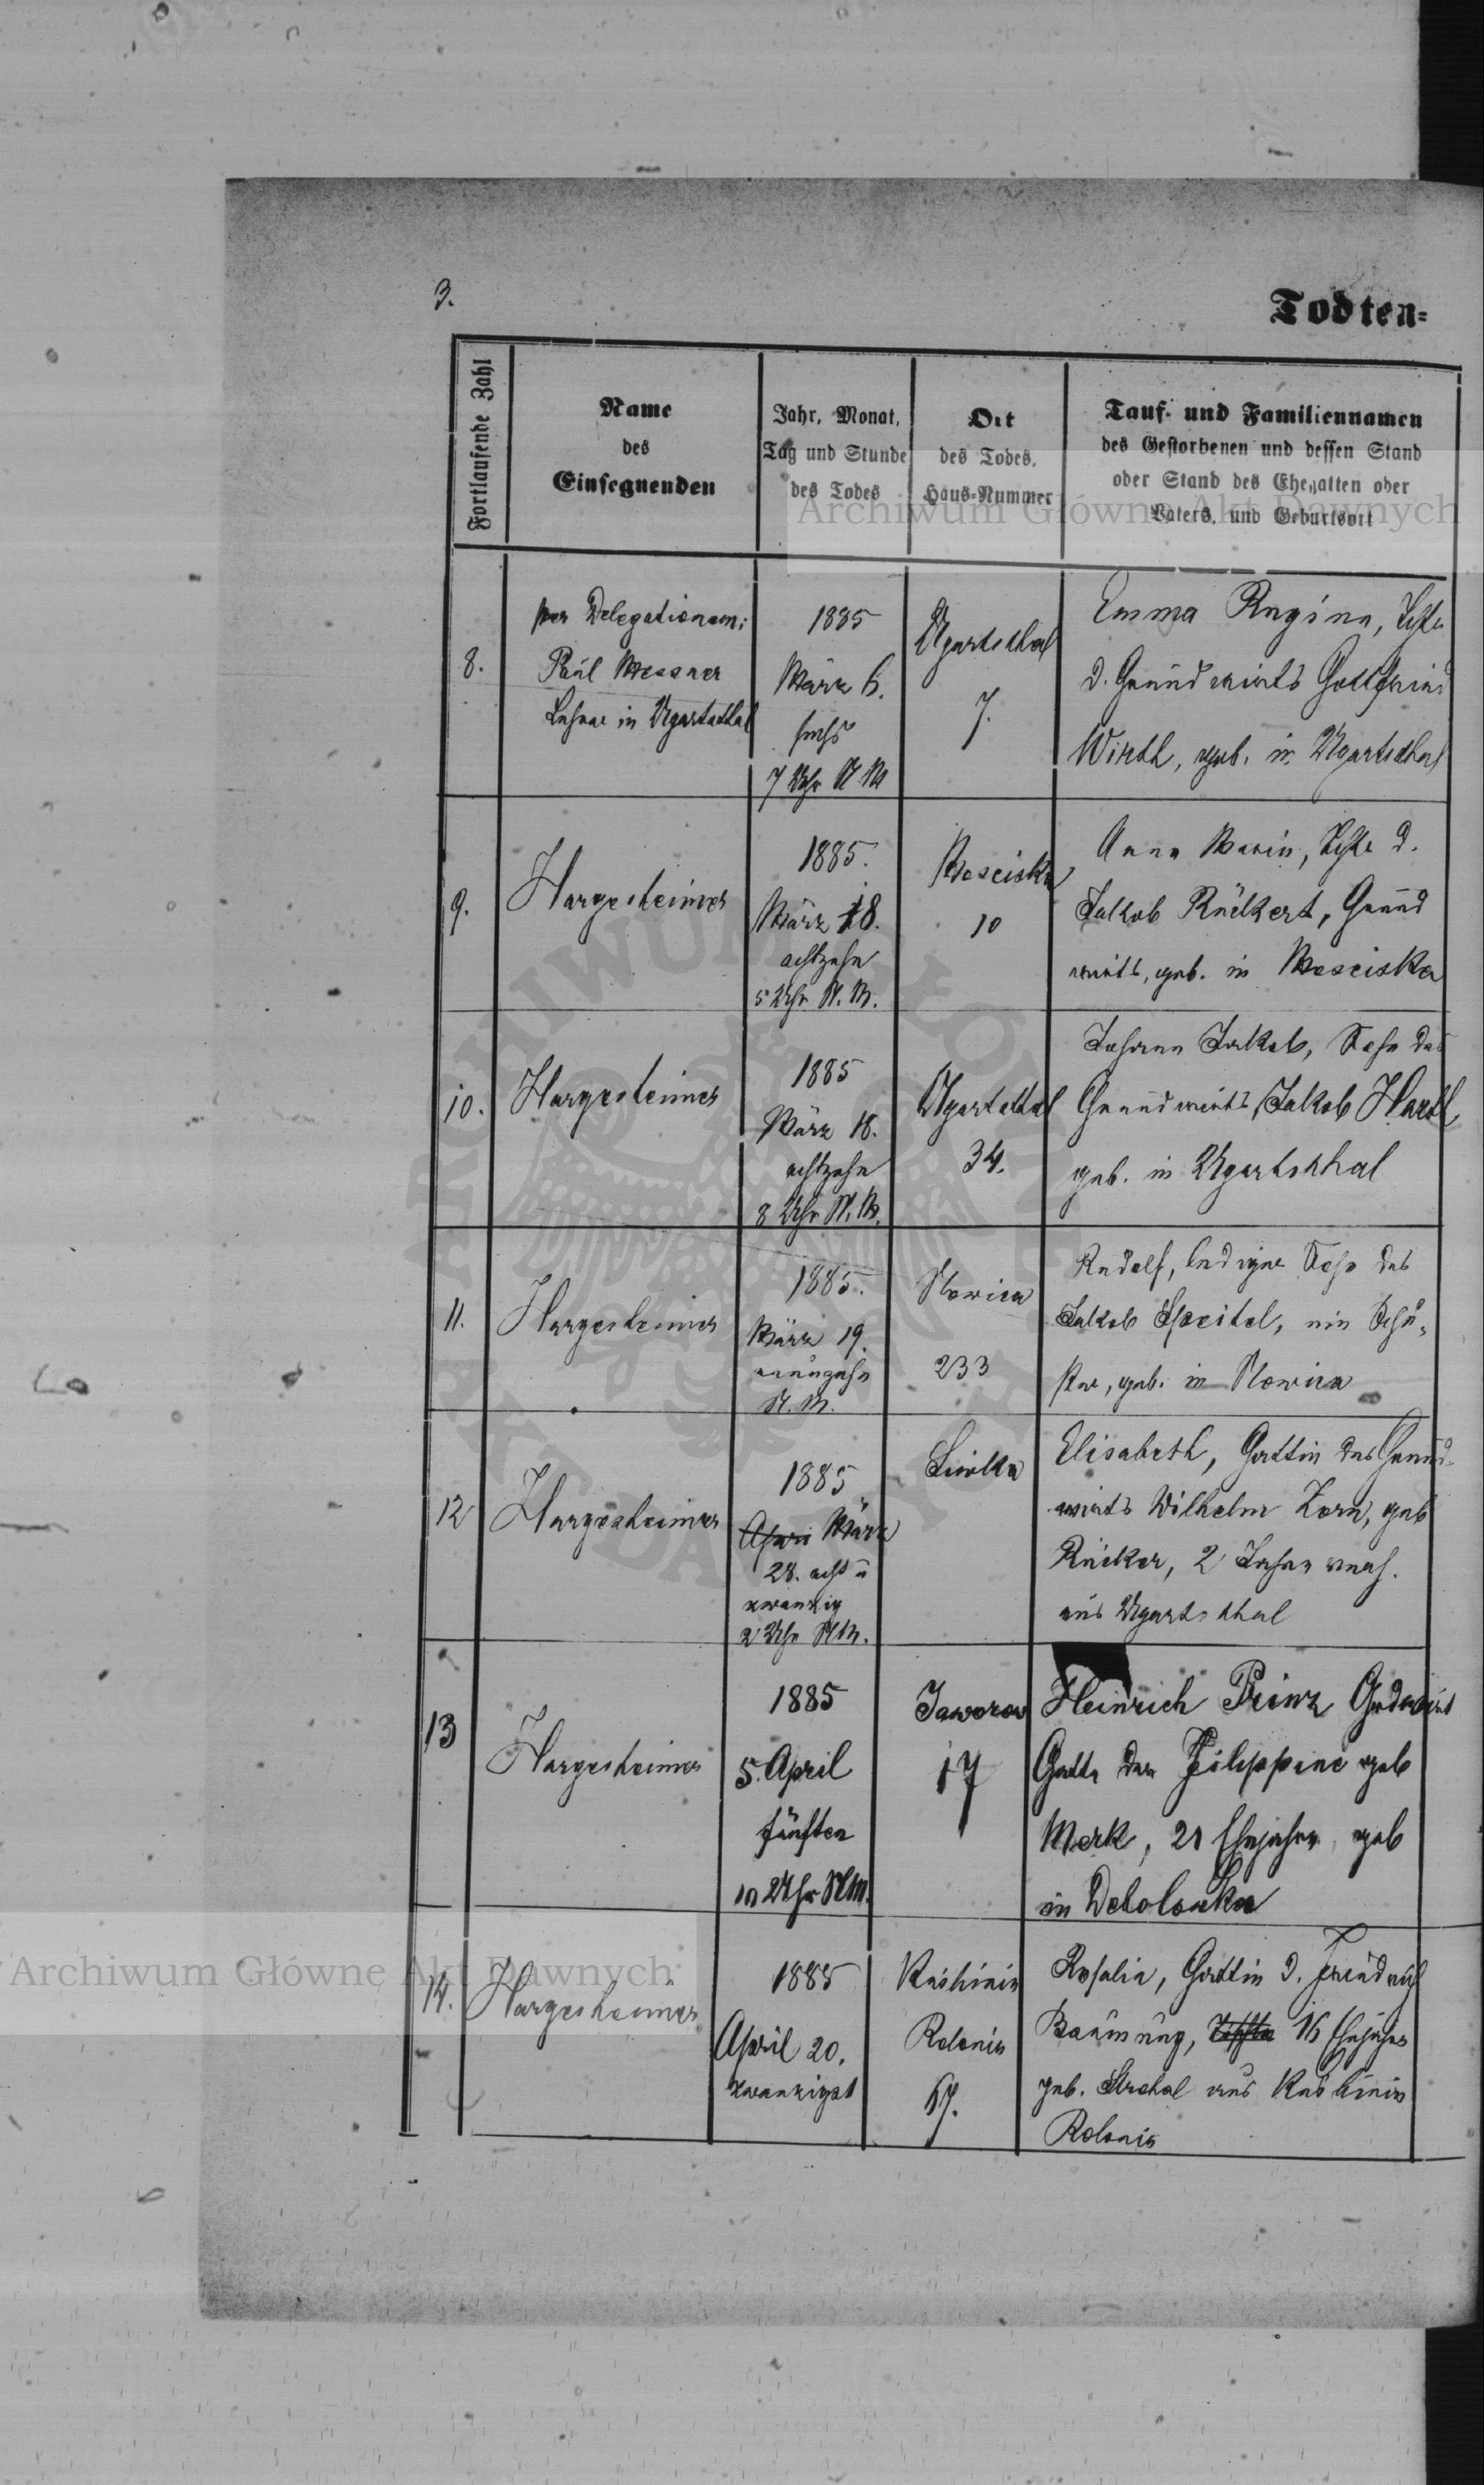 3.
Todten=
Fortlaufende Zahl
Name
des
Einsegnenden
Jahr, Monat,
Tag und Stunde
des Todes
Ort
des Todes,
Haus=Nummer
Tauf- und Familiennamen
des Gestorbenen und dessen Stand
oder Stand des Ehegatten oder
Vaters, und Geburtsort
Archiwum Główne Akt Dawnych
8.
per Delegationem:
Paul Messner
Lehrer in Ugartsthal
1885
März 6.
sechs
7 Uhr N M
Ugartsthal
7.
Emma Regina, Tchtr
d. Grundwirts Gottfried
Wirth, geb. in Ugartsthal
9.
Hargesheimer
1885.
März 18.
achtzehn
5 Uhr N. M.
Mosciska
10
Anna Maria, Tchtr d.
Jakob Rückert, Grund
wirts, geb. in Mosciska
10.
Hargesheimer
1885
März 18.
achtzehn
8 Uhr N. M.
Ugartsthal
34.
Johann Jakob, Sohn des
Grundwirts Jakob Hartl,
geb. in Ugartsthal
11.
Hargesheimer
1885.
März 19.
neunzehn
N. M.
Nowica
233
Rudolf, lediger Sohn des
Jakob Speitel, ein Schu=
ster, geb. in Nowica
12
Hargesheimer
1885
April März
28. acht u
zwanzig
2 Uhr NM.
Siwka
Elisabeth, Gattin des Grund=
wirts Wilhelm Zorn, geb
Rücker, 2 Jahre verh.
aus Ugartsthal
13
Hargesheimer
1885
5. April
fünften
10 Uhr NM.
Jaworow
17
Heinrich Prinz Grdwirt
Gatte der Filippine geb
Merk, 21 Ehejahre geb
in Debolowka
14.
Hargesheimer
1885
April 20.
zwanzigst
Kashinie
Kolonie
67.
Rosalia, Gattin d. Friedrich
Baumung, 16 Ehejahre
geb. Strohal aus Kashinie
Kolonie
Archiwum Główne Akt Dawnych
ARCHIWUM GŁÓWNE AKT DAWNYCH